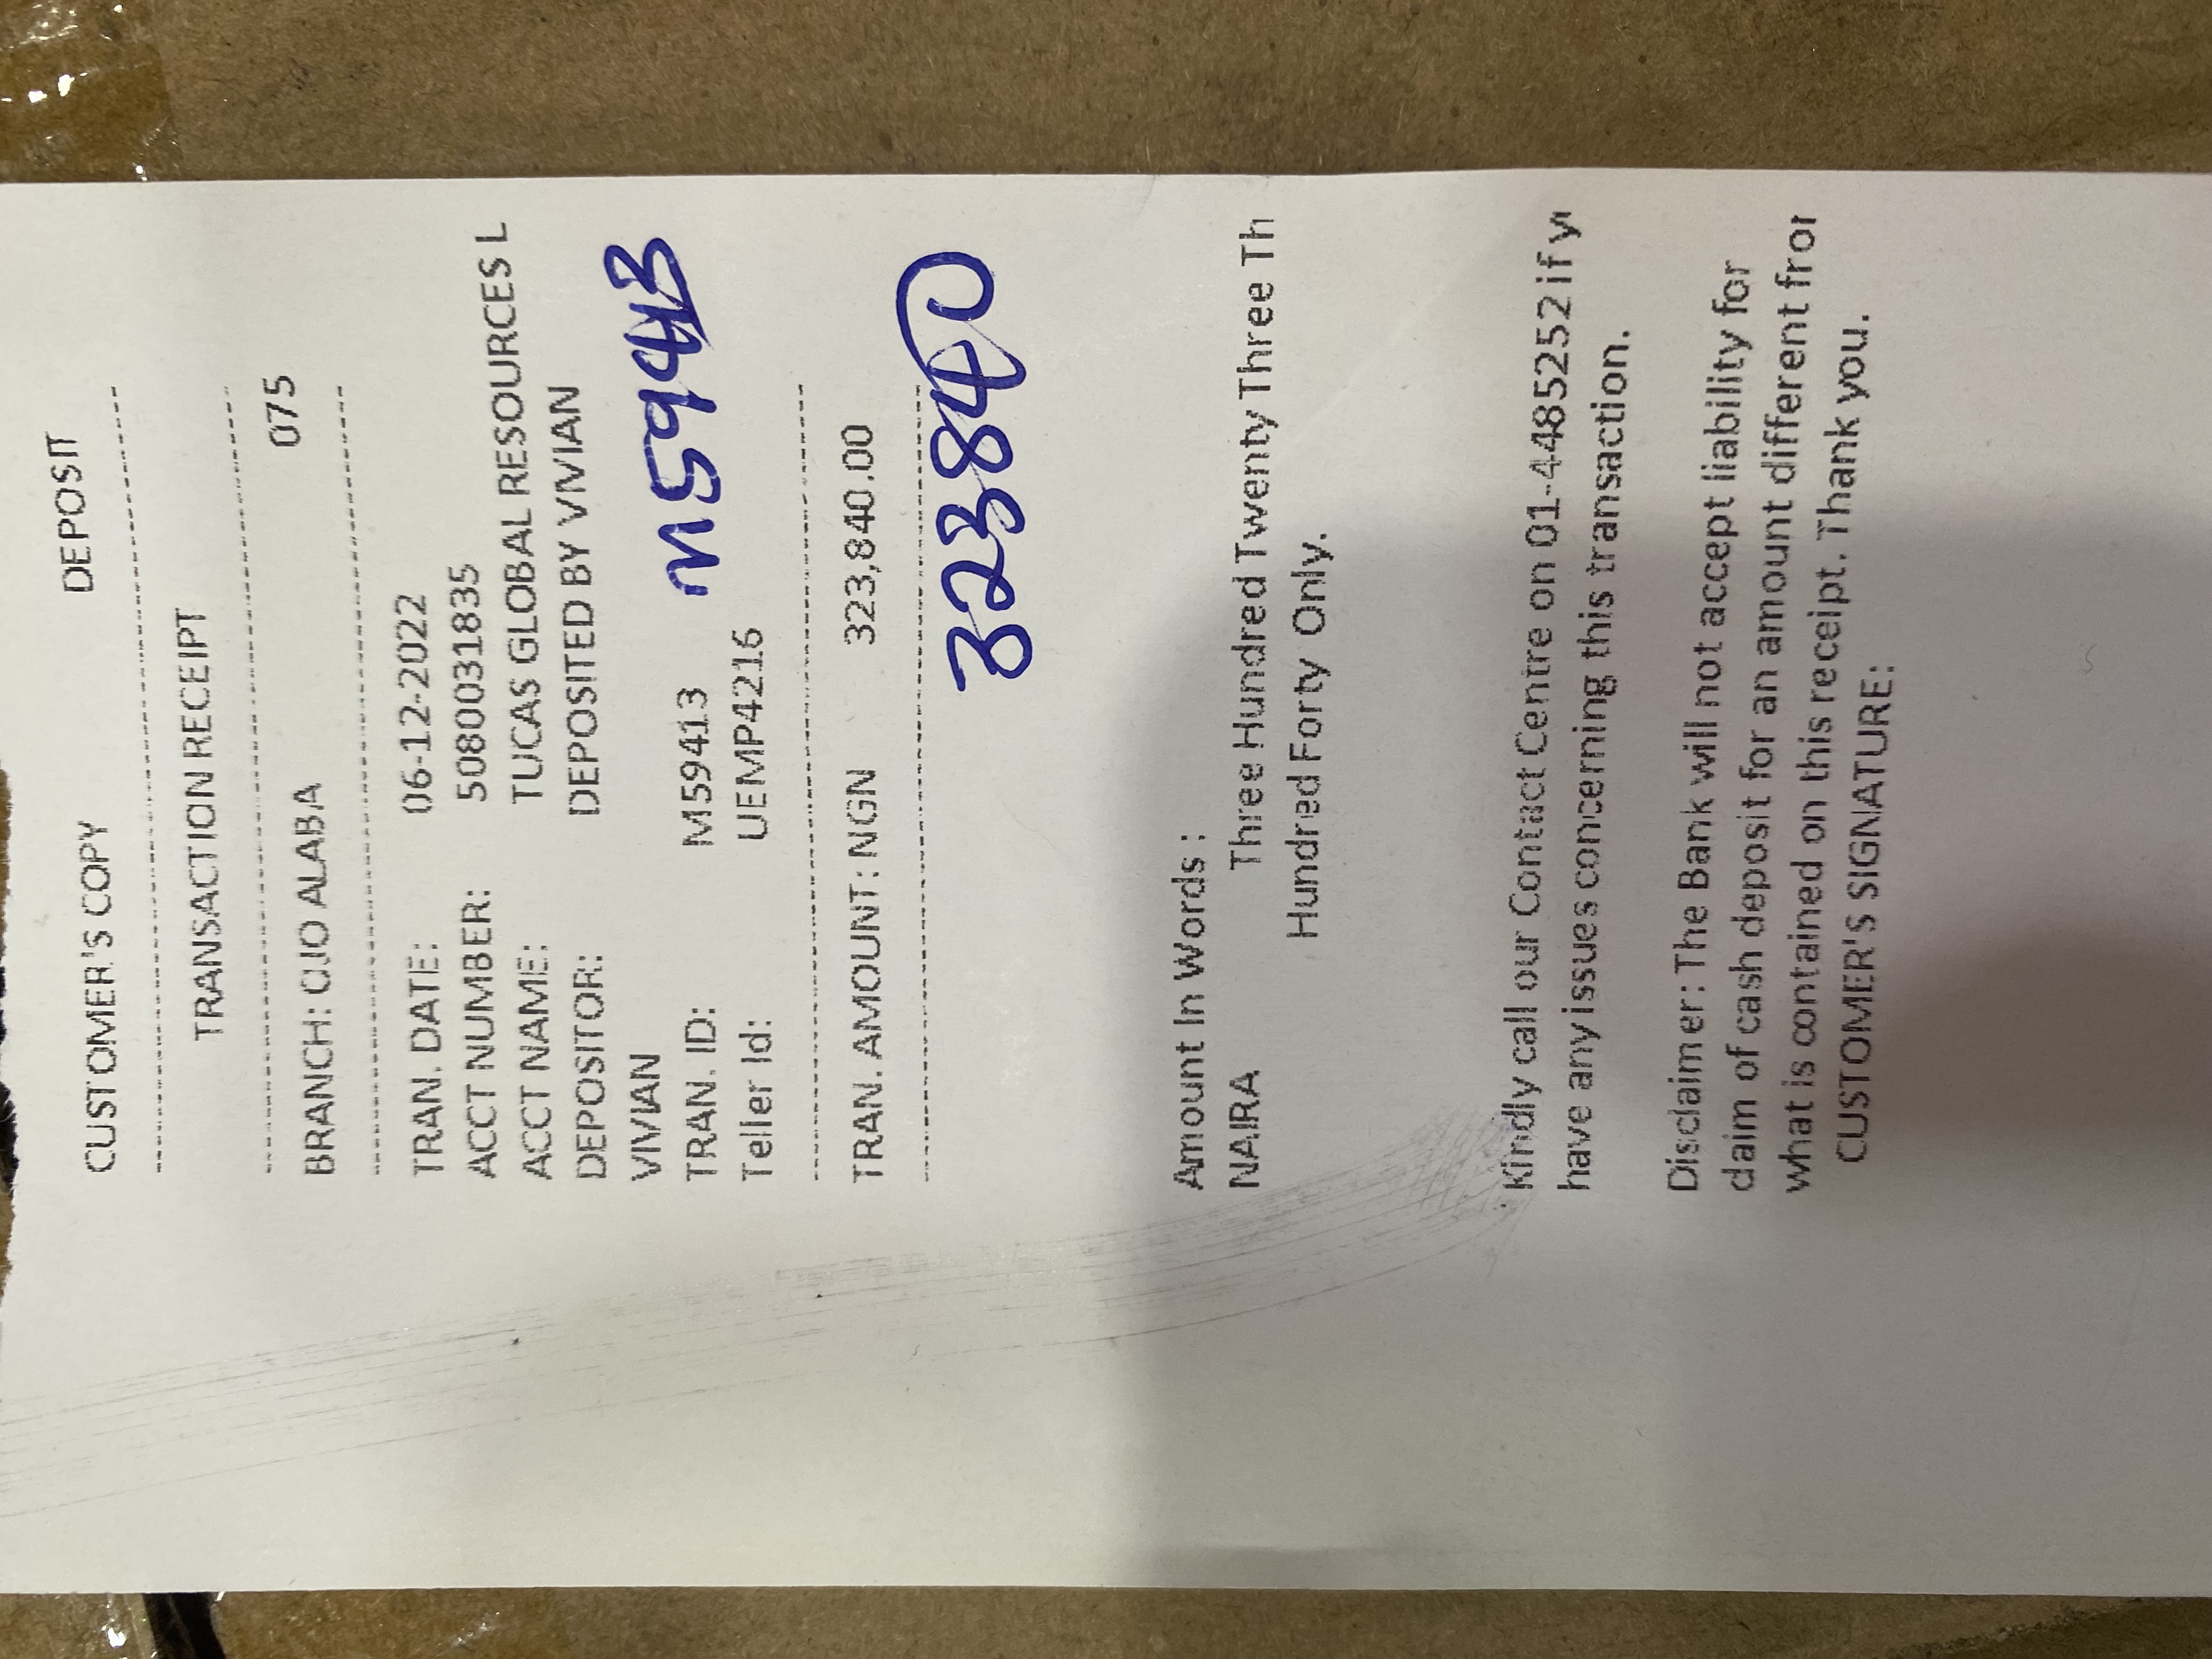 CUSTOMER'S COPY DEPOSIT
TRANSACTION RECEIPT
BRANCH: OJO ALABA 075
TRAN. DATE: 06-12-2022
ACCT NUMBER: 5080031835
ACCT NAME: TUCAS GLOBAL RESOURCES L
DEPOSITOR: DEPOSITED BY VIVIAN
VIVIAN
TRAN. ID: M59413 M59413
Teller Id: UEMP4216
TRAN. AMOUNT: NGN 323,840.00
323840
Amount In Words :
NAIRA Three Hundred Twenty Three Th
Hundred Forty Only.
Kindly call our Contact Centre on 01-4485252 if y
have any issues concerning this transaction.
Disclaimer: The Bank will not accept liability for
claim of cash deposit for an amount different fror
what is contained on this receipt. Thank you.
CUSTOMER'S SIGNATURE: